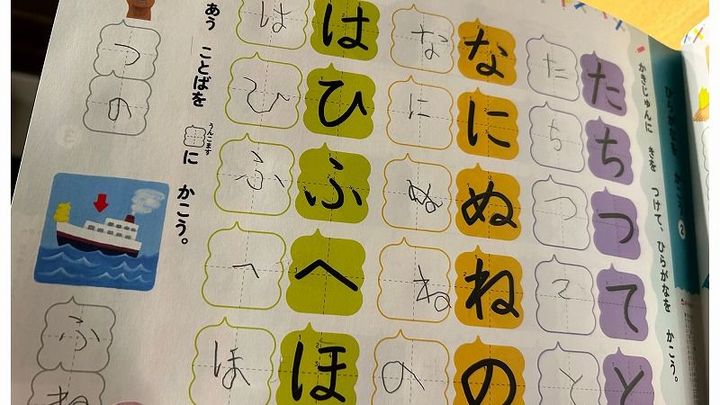 ひらがなを かこう 2
かきじゅんに きを つけて、ひらがなを かこう。
た た
ち ち
つ つ
て て
と と
な な
に に
ぬ ぬ
ね ね
の の
は は
ひ ひ
ふ ふ
へ へ
ほ ほ
あう ことばを うんこますに かこう。
つ
の
ふ
ね